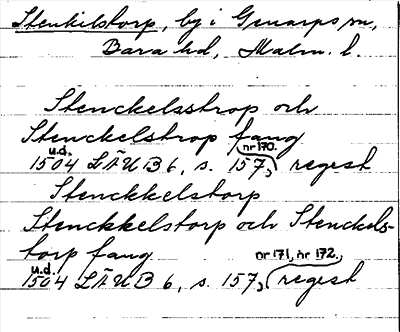 Stenkilstorp, by i Genarps sn,
Bara hd, Malm. l.
Stenckelsstrop och
Stenckelstrop fang
u.d. nr 170.
1504 LÄUB 6, s. 157, regest
Stenckkelstorp
Stenckkelstorp och Stenckels-
torp fang
u.d. nr 171, nr 172.
1504 LÄUB 6, s. 157, regest